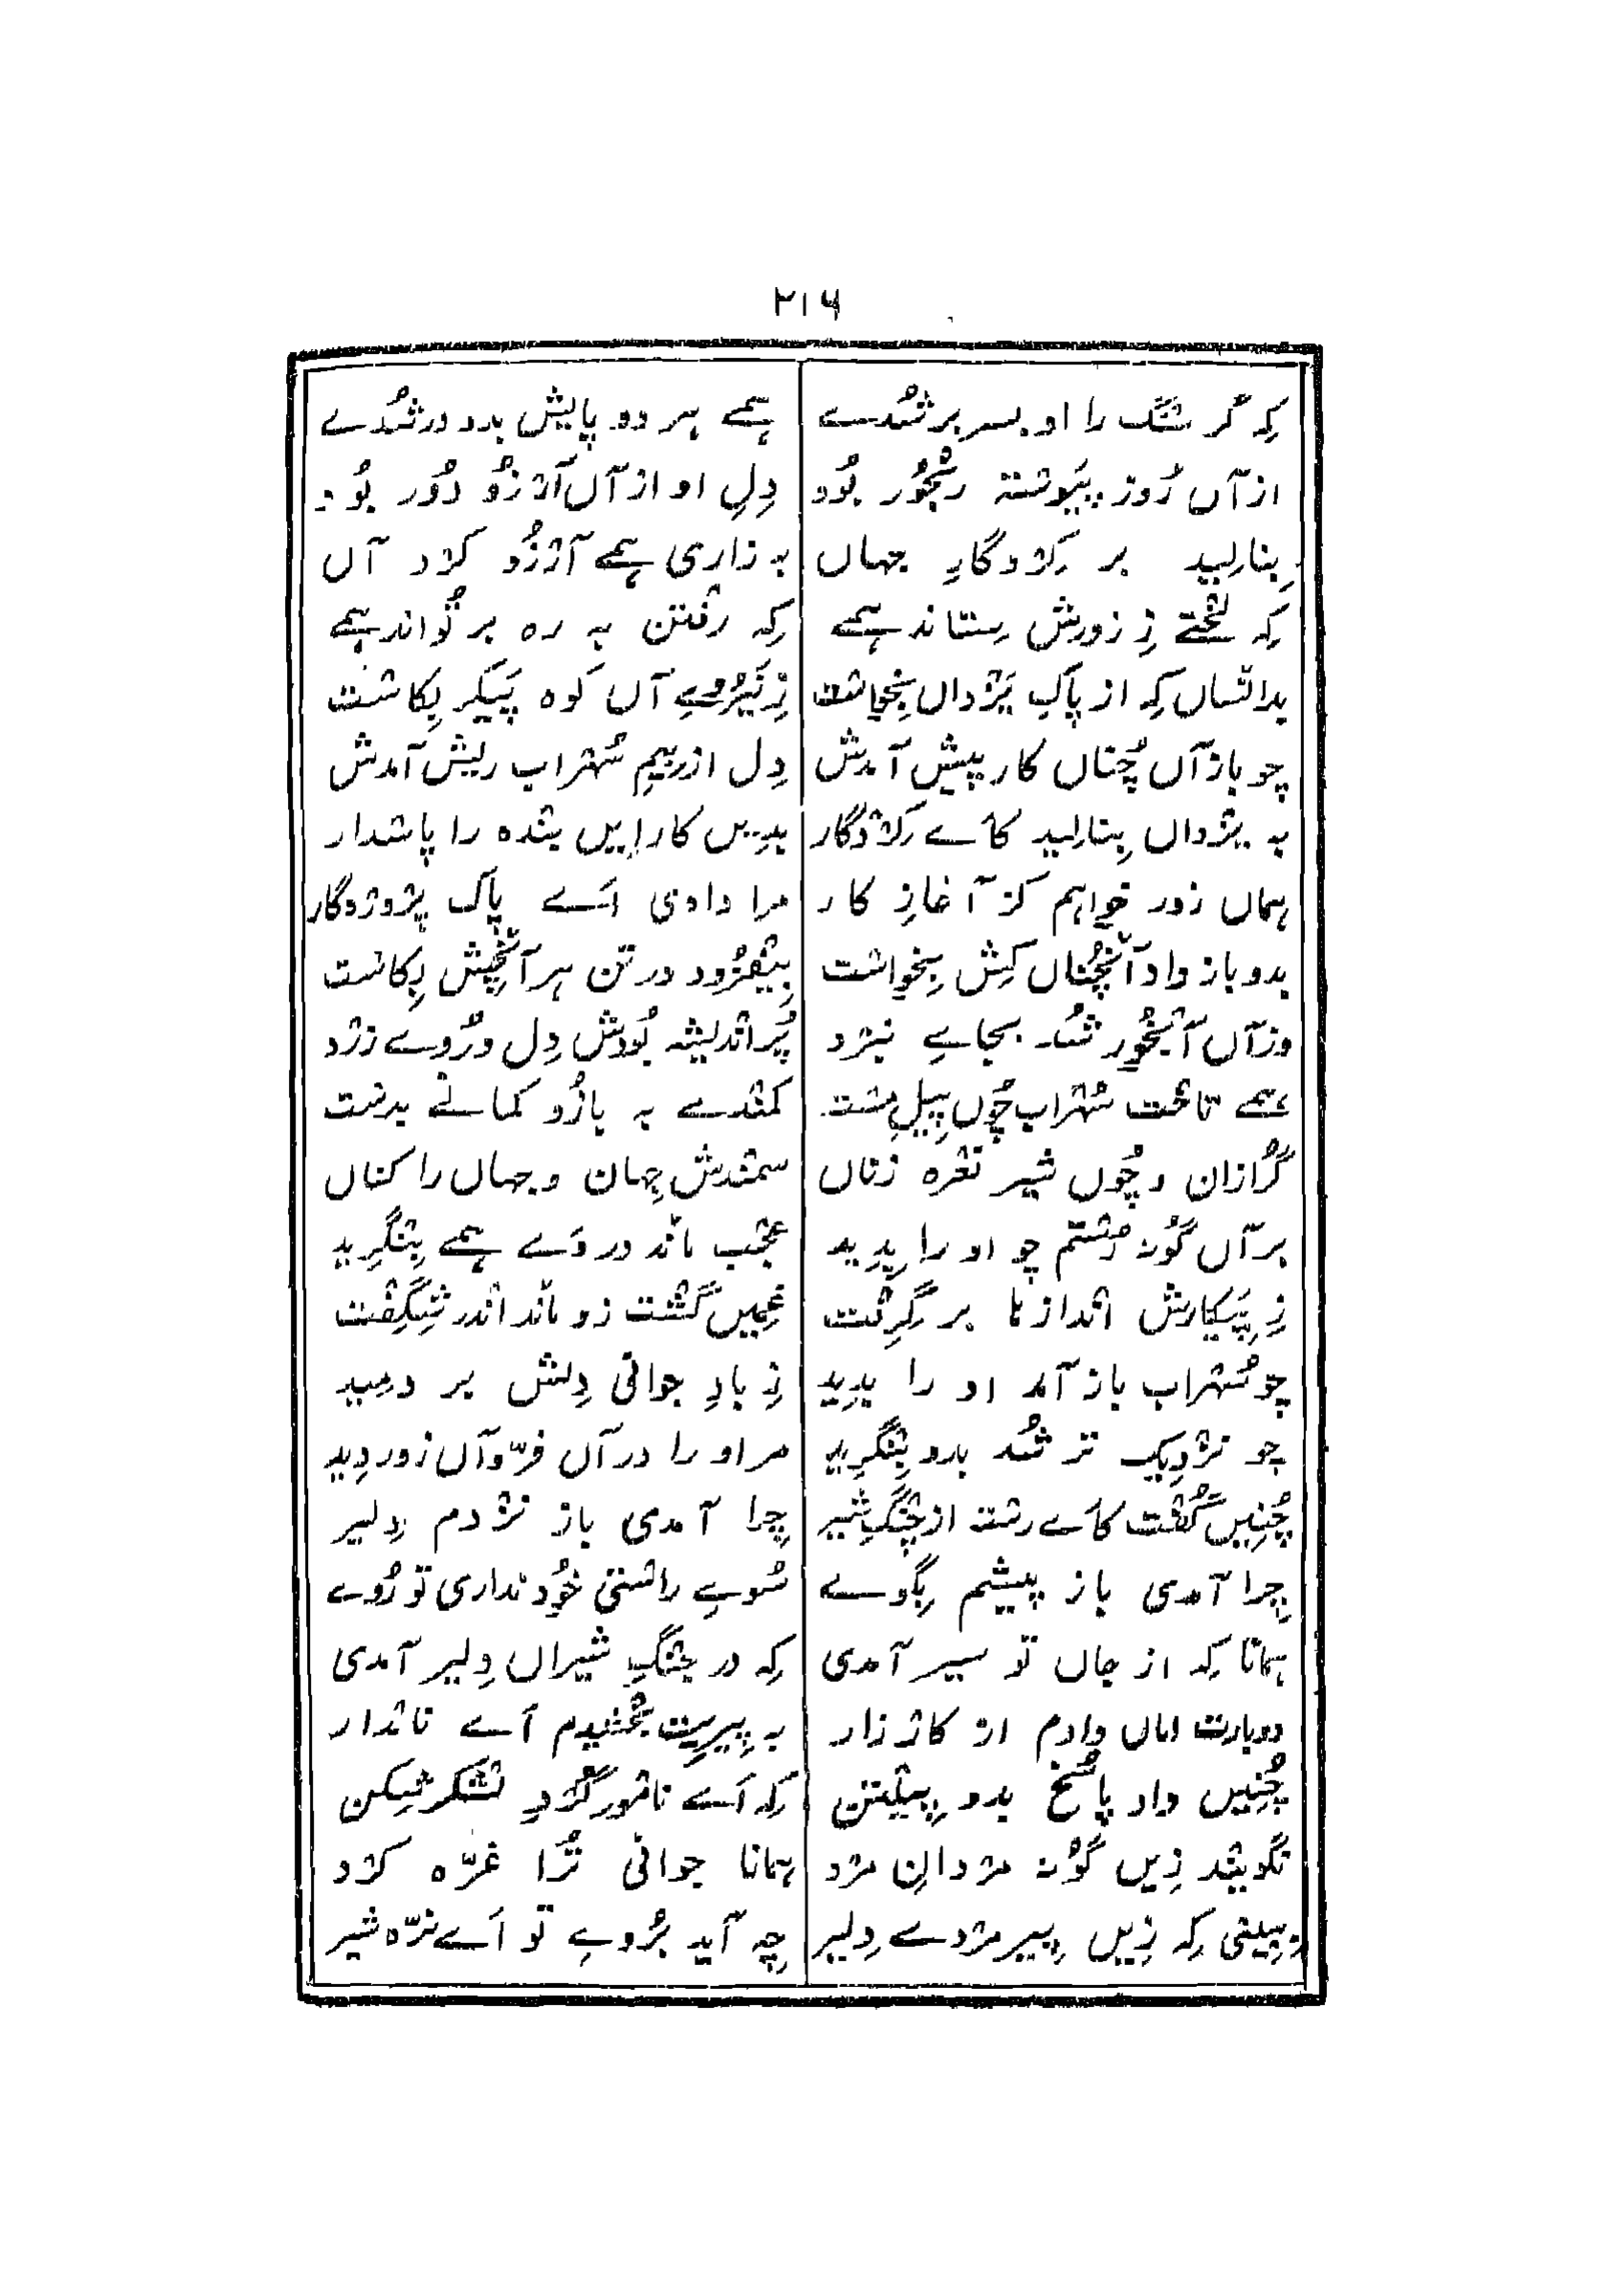 ۲۱۶
کِہ گر سنگ را او بسر بر شُدے ہمے ہر دو پایش بدو در شُدے
از آں رُوز پیَوستہ رنجُور بُود دِلِ او از آں آرزُو دُور بُود
بِنالید بر کِردگارِ جہاں بہ زاری ہمے آرزُو کرد آں
کِہ لختے زِ زورش سِتاند ہمے کِہ رفتن بہ رہ بر تُواند ہمے
بدانساں کِہ از پاک یَزداں بِخواست زِ نَیرُوے آں کوہ پَیکر بِکاست
چو باز آں چُناں کار پیش آمدش دِل از بیمِ سُہراب ریش آمدش
بہ یزداں بِنالید کاے کِردگار بدِیں کار ایں بندہ را پاسدار
ہماں زور خواہم کز آغازِ کار مرا دادی اَے پاک پروردگار
بدو باز داد آنچُناں کِش بِخواست بِیفزُود در تن ہر آنچِش بِکاست
وز آں آبخُور شُد بجاےِ نبرد پُر اندیشہ بُودش دِل و رُوے زرد
ہمے تاخت سُہراب چُوں پِیلِ مست کمندے بہ بازُو کمانے بدست
گُرازان و چُوں شیر نعرہ زناں سمندش جِہان و جہاں را کناں
بر آں گُونہ رُستم چو او را بِدید عجب ماند در وَے ہمے بِنگرِید
زِ پَیکارش اندازہا بر گِرِفت غمِیں گشت زو ماند اندر شِگِفت
چو سُہراب باز آمد او را بدِید زِ بادِ جوانی دِلش بر دمید
چو نزدِیک تر شُد بدو بِنگرِید مر او را در آں فرّ و آں زور دِید
چُنِیں گُفت کاَے رستہ از چنگِ شیر چِرا آمدی باز نزدم دِلیر
چِرا آمدی باز پیشم بِگوے سُوےِ راستی خُود نداری تو رُوے
ہمانا کِہ از جاں تو سیر آمدی کِہ در جنگِ شیراں دِلیر آمدی
دوبارت اماں دادم از کارزار بہ پِیرِیت بخشیدم اَے نامدار
چُنِیں داد پاسُخ بدو پِیلتن کِہ اَے نامور گُردِ لشکر شِکن
نگویند زِیں گُونہ مردانِ مرد ہمانا جوانی تُرا غرّہ کرد
بِبینی کِہ زِیں پِیر مردے دِلیر چِہ آید برُوےِ تو اَے نرّہ شیر